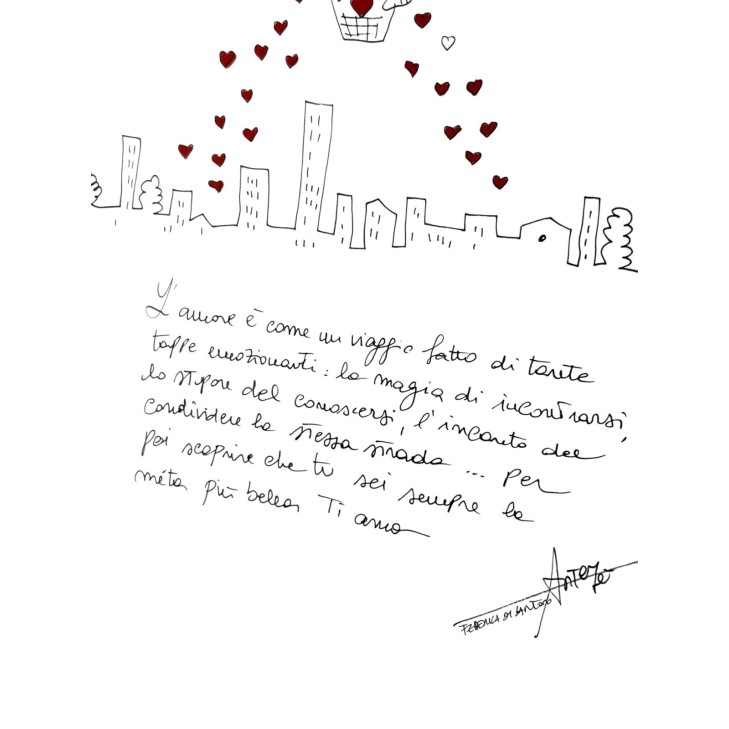 L'amore è come un viaggio fatto di tante
tappe emozionanti: la magia di incontrarsi,
lo stupore del conoscersi, l'incanto del
condividere la stessa strada ... Per
poi scoprire che tu sei sempre la
méta più bella Ti amo